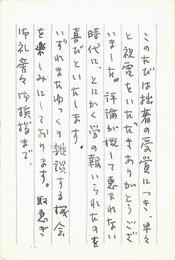 このたびは拙著の受賞につき、早々
と祝電をいただきありがとうござ
いました。評論が概して恵まれない
時代にとにかく労の報いられたのを
喜びといたします。
いずれまたゆっくり雑談する機会
を楽しみにしております。取急ぎ
御礼旁々御挨拶まで、